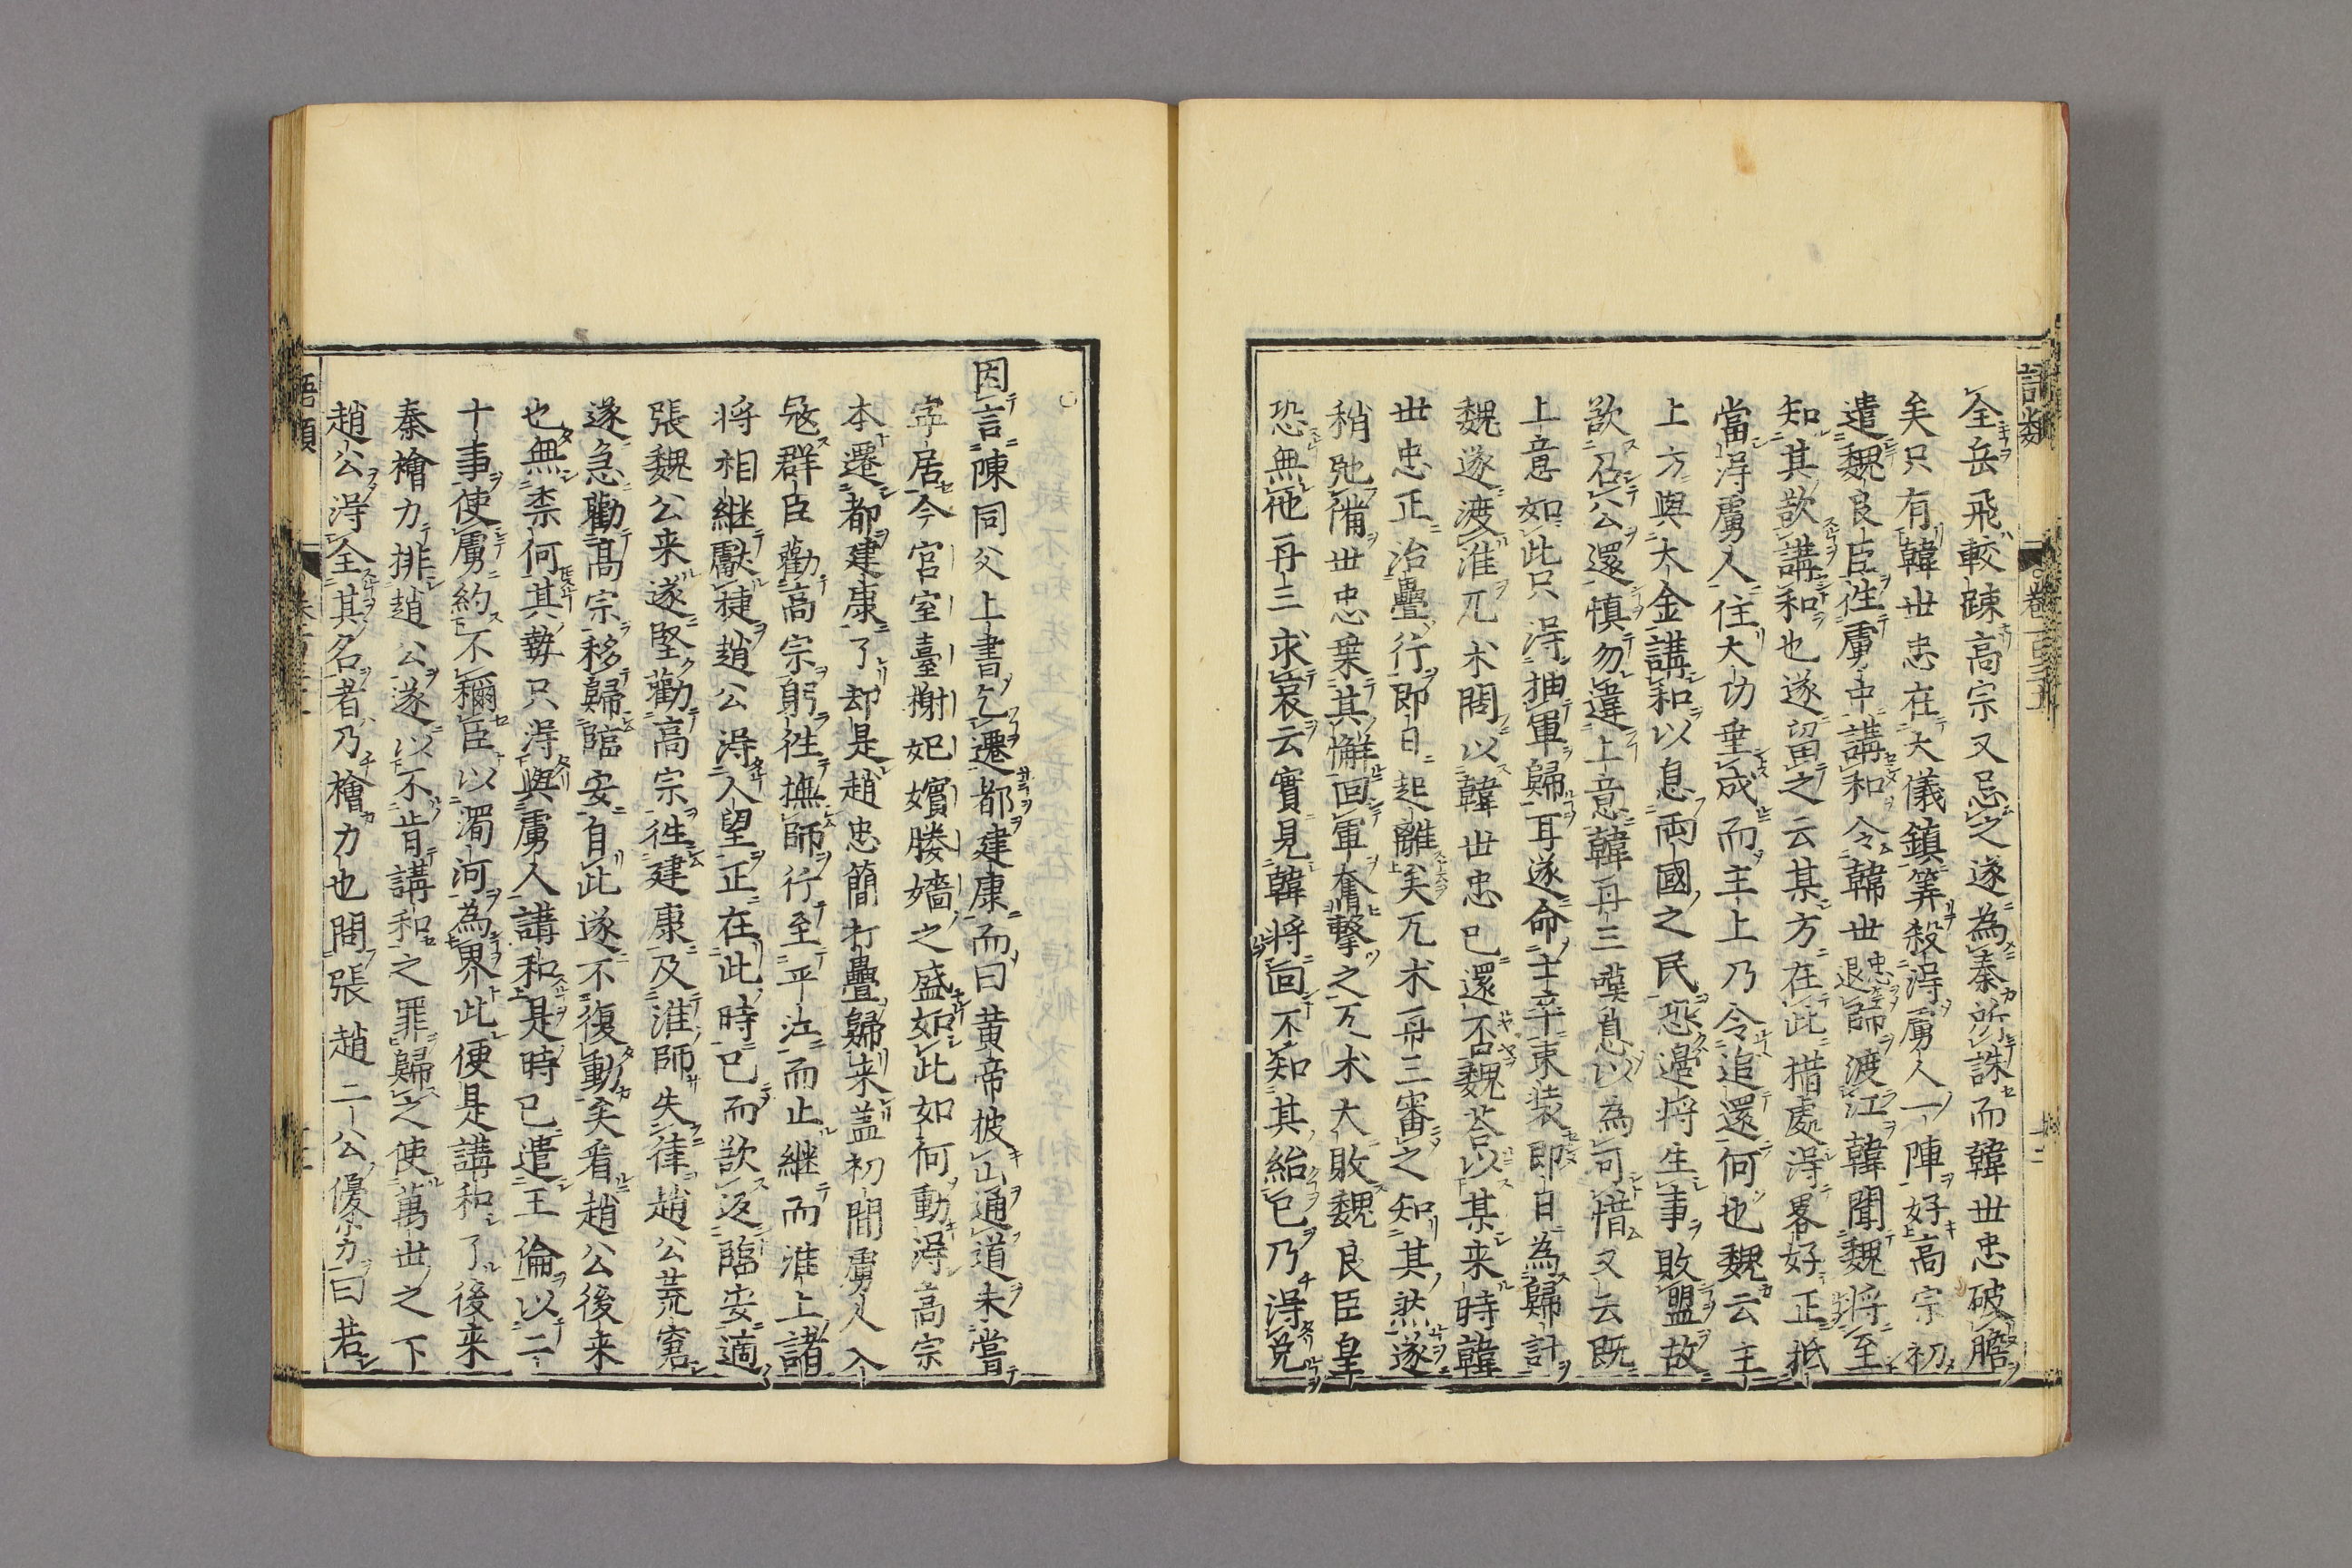 全岳飛較踈高宗又忌之遂為秦所誅而韓世忠破膽
矣只有韓世忠在大儀鎮筭殺得虜人一陣好高宗初
遣魏良臣往虜中講和令韓世忠退師渡江韓聞魏將至
知其欲講和也遂留之云某方在此措處得畧好正抵
當得虜人住大功垂成而主上乃令追還何也魏云主
上方與大金講和以息兩國之民恐邊將生事敗盟故
欲召公還慎勿違上意韓再三嘆息以為可惜又云既
上意如此只得抽軍歸耳遂命士卒束裝即日為歸計
魏遂渡淮兀朮問以韓世忠已還否魏荅以某来時韓
世忠正治疊行即日起離矣兀朮再三審之知其然遂
稍弛備世忠乗其懈回軍奮擊之兀朮大敗魏良臣皇
恐無他再三求哀云實見韓将回不知其紿己乃得免
因言陳同父上書乞遷都建康而曰黄帝披山通道未嘗
寧居今宮室臺榭妃嬪媵嬙之盛如此如何動得高宗
本遷都建康了却是趙忠簡打疊歸来盖初間虜人入
冦群臣勸高宗躬往撫師行至平江而止継而淮上諸
将相継獻捷趙公得人望正在此時已而欲返臨安適
張魏公来遂堅勸高宗往建康及淮師失律趙公荒窘
遂急勸髙宗移歸臨安自此遂不復動矣看趙公後来
也無柰何其勢只得與虜人講和是時已遣王倫以二
十事使虜約不稱臣以濁河為界此便是講和了後来
秦檜力排趙公遂以不肯講和之罪歸之使萬世之下
趙公得全其名者乃檜力也問張趙二公優劣曰若
語類
卷百三十一